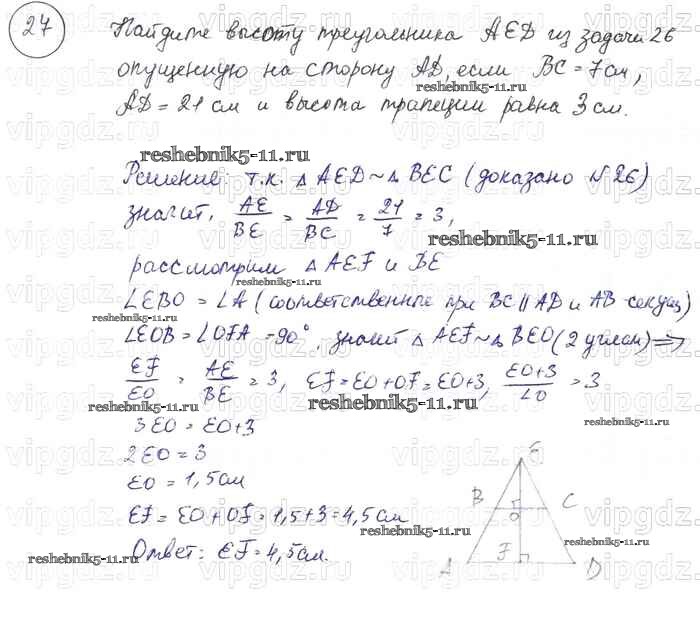 27
Найдите высоту треугольника AED из задачи 26
опущенную на сторону AD, если BC = 7см,
AD = 21 см и высота трапеции равна 3 см.
reshebnik5-11.ru
Решение: т.к. △ AED ~ △ BEC (доказано №26)
значит, AE/BE = AD/BC = 21/7 = 3,
reshebnik5-11.ru
рассмотрим △ AEF и BE
∠EBO = ∠A (соответственные при BC || AD и AB секущ)
reshebnik5-11.ru
∠EOB = ∠OFA = 90°, значит △ AEF ~ △ BEO (2 углам) ⇒
EF/EO = AE/BE = 3, EF = EO + OF = EO+3, EO+3/EO = 3
reshebnik5-11.ru
3EO = EO+3
reshebnik5-11.ru
2EO = 3
EO = 1,5см
EF = EO + OF = 1,5+3 = 4,5см
Ответ: EF = 4,5см.
reshebnik5-11.ru
E
B
C
O
F
A
D
reshebnik5-11.ru
vipgdz.ru